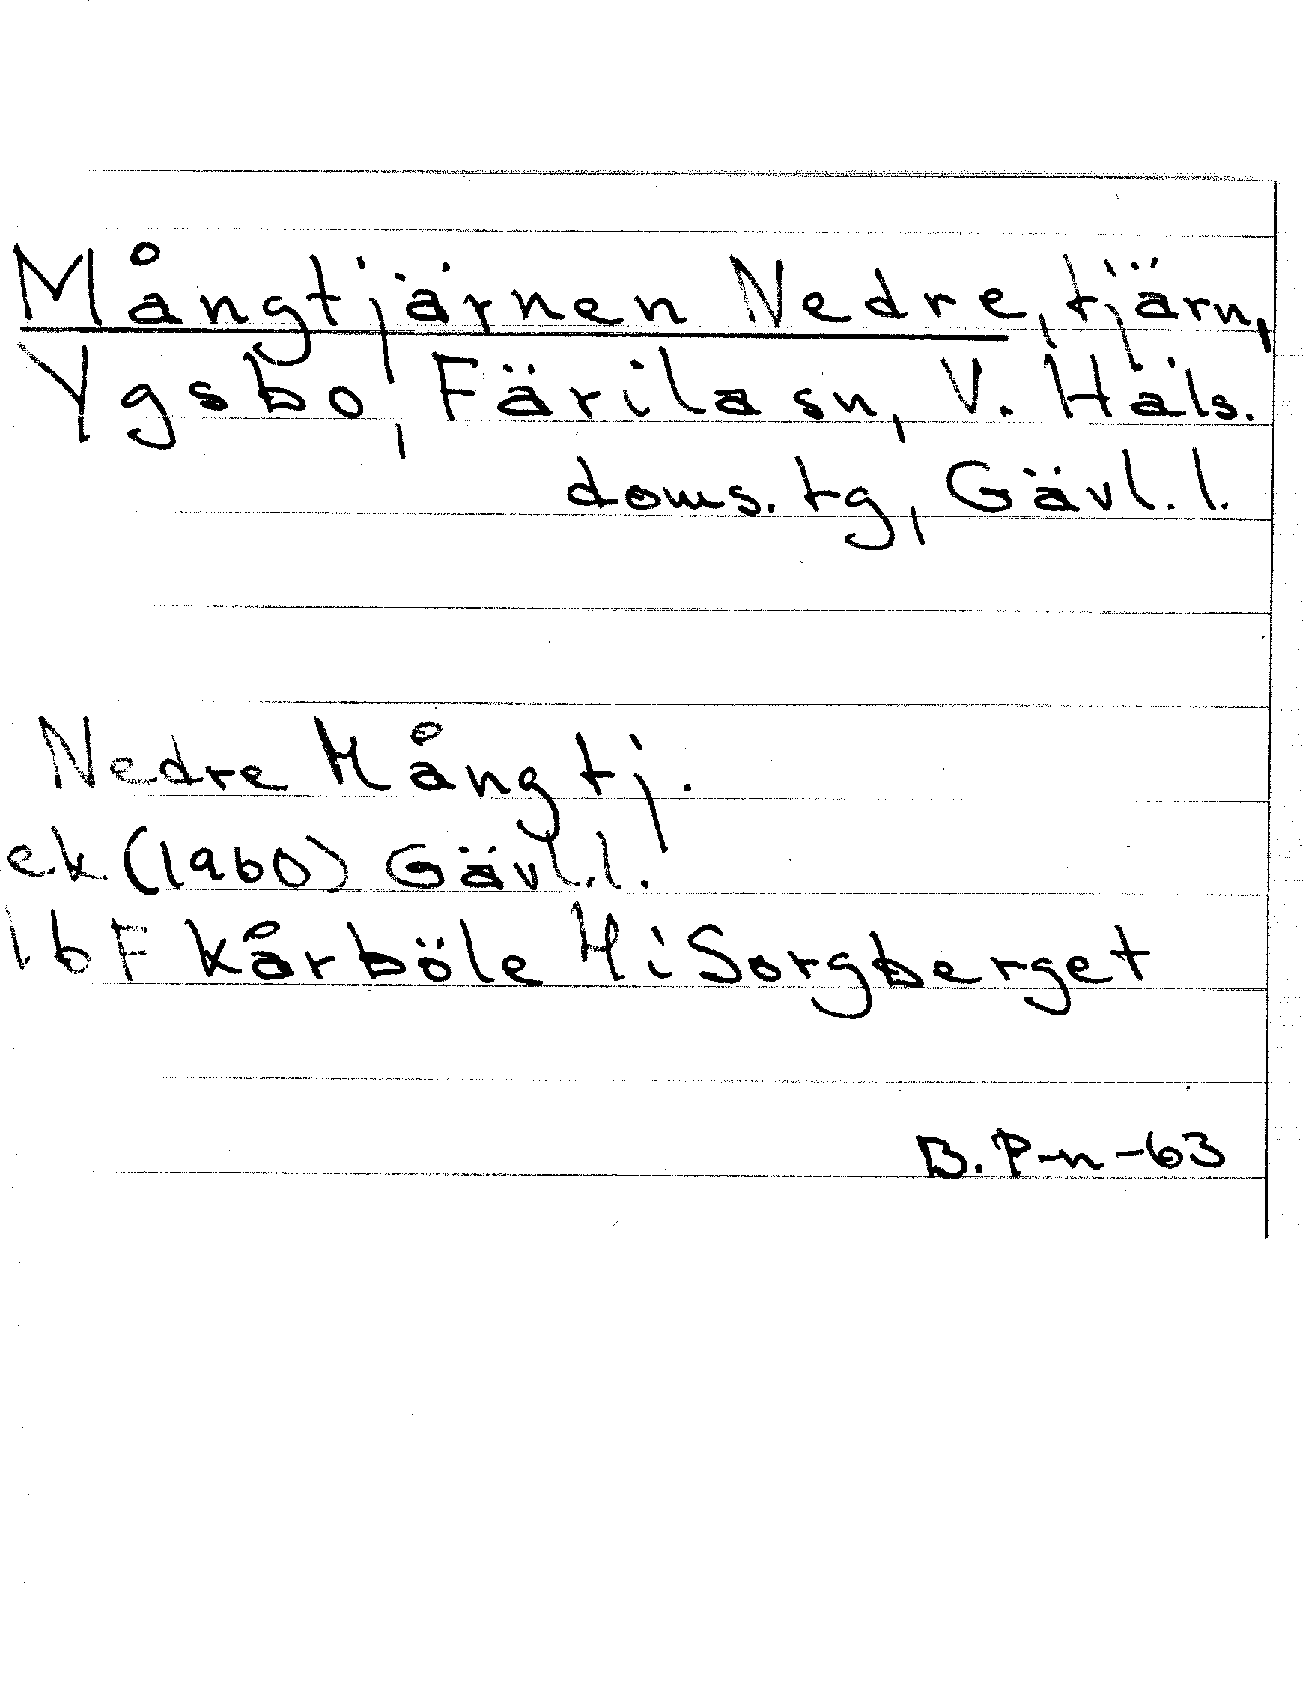 Mångtjärnen Nedre, tjärn,
Ygsbo, Färila sn, V. Häls.
doms. tg, Gävl. l.
Nedre Mångtj.
ek (1960) Gävl. l.
16F Kårböle Hi Sorgberget
B. P-n -63